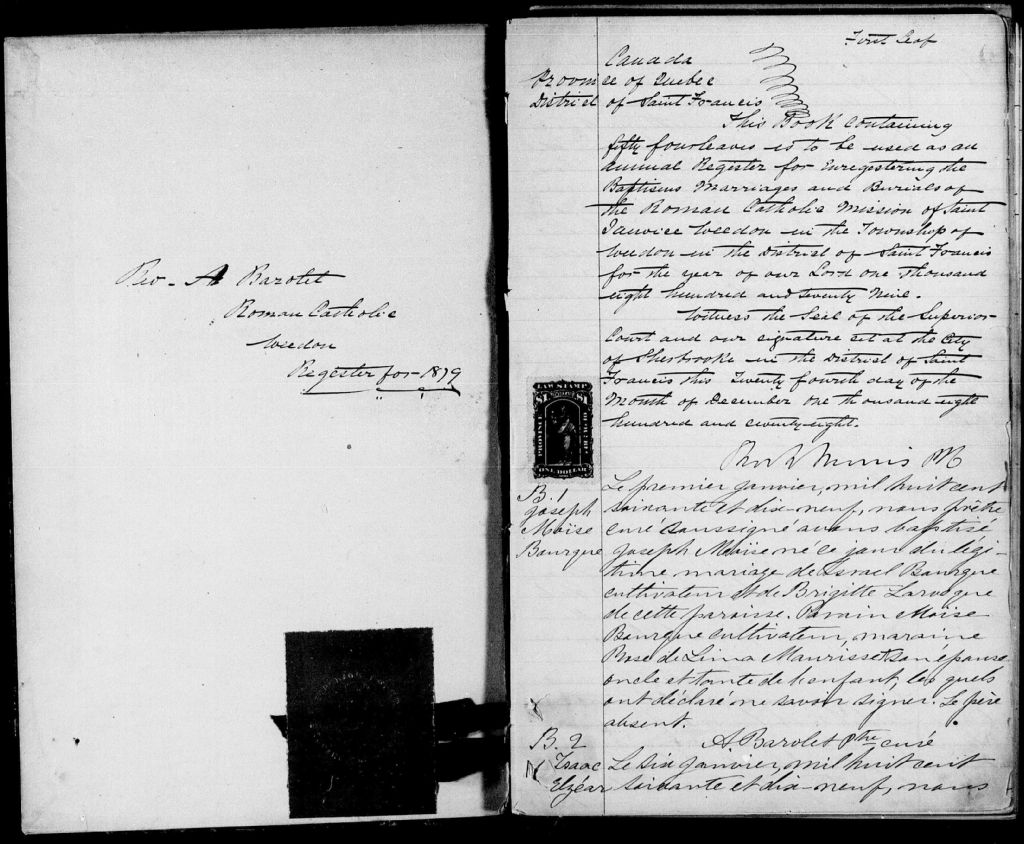 Rev. A Barolet
Roman Catholic
Weedon
Register for 1879
First Leaf
Canada
Province of Quebec
District of Saint Francis
This Book containing
fifty four leaves is to be used as an
annual Register for Enregistering the
Baptisms Marriages and Burials of
the Roman Catholic Mission of Saint
Janvice Weedon in the Township of
Weedon in the District of Saint Francis
for the year of our Lord one Thousand
eight hundred and seventy Nine.
Witness the Seal of the Superior
Court and our signature set at the City
of Sherbrooke in the District of Saint
Francis this Twenty fourth day of the
Month of December one thousand eight
hundred and seventy eight.
LAW STAMP
PROVINCE
ONE DOLLAR
Morris
B. 1
Joseph
Moïse
Bourque
Le premier janvier, mil huit cent
soixante et dix-neuf, nous prêtre
curé soussigné avons baptisé
Joseph Moïse né ce jour du légi-
time mariage de Israel Bourque
cultivateur et de Brigitte Larocque
de cette paroisse. Parrain Moïse
Bourque cultivateur, marraine
Rose de Lima Maurisset son épouse
oncle et tante de l'enfant, les quels
ont déclaré ne savoir signer. Le père
absent.
A Barolet Ptre curé
B. 2
Isaac
Elzéar
Le six janvier, mil huit cent
soixante et dix-neuf, nous